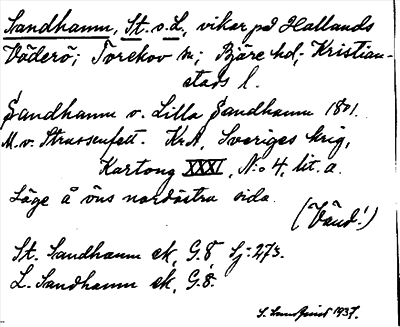 Sandhamn, St. o. L., vikar på Hallands
Väderö; Torekov sn; Bjäre hd; Kristian-
stads l.
Sandhamn o. Lilla Sandhamn 1801.
M. v. Strussenfelt. KrA, Sveriges krig,
Kartong XXXI, N:o 4, lit. a.
Läge å öns nordöstra sida.
(Vänd!)
St. Sandhamn ek, G.8 Sj:273.
L. Sandhamn ek, G.8.
1937.